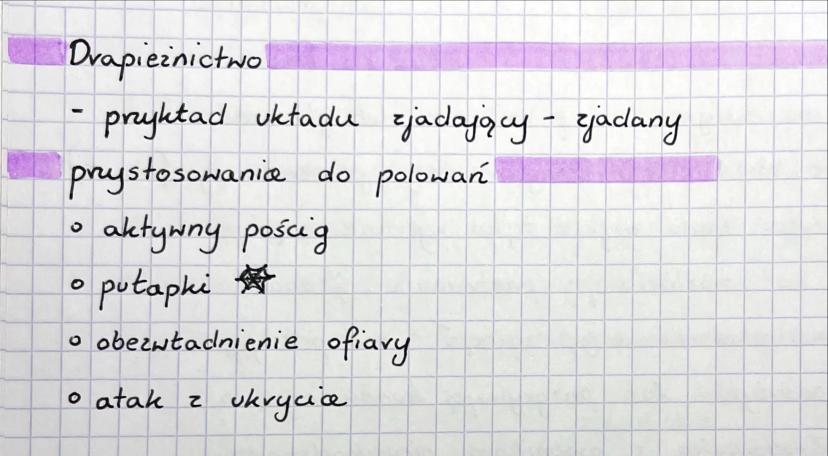 Drapieżnictwo
- przykład układu zjadający - zjadany
przystosowania do polowań
o aktywny pościg
o pułapki
o obezwładnienie ofiary
o atak z ukrycia